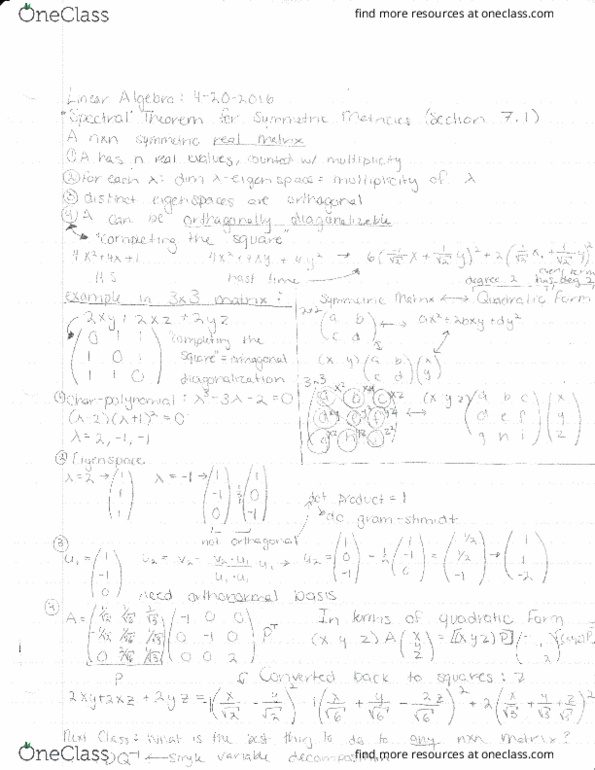 OneClass
find more resources at oneclass.com
Linear Algebra: 4-20-2016
"Spectral" Theorem for Symmetric Matricies (Section 7.1)
A nxn symmetric real matrix
① A has n real evalues, counted w/ multiplicity
② for each λ: dim λ-eigenspace = multiplicity of λ
③ distinct eigenspaces are orthogonal
④ A can be orthogonally diagonalizable
"completing the square"
4x²+4x+1 4x²+4xy+4y² → 6(1/√2 x + 1/√2 y)² + 2(
H.S last time
degree 2 every term has deg 2
example in 3x3 matrix:
2xy + 2xz + 2yz
(0 1 1
1 0 1
1 1 0)
"completing the square" = orthogonal diagonalization
Symmetric Matrix ↔ Quadratic Form
2x2 (a b
c d) ↔ ax²+2bxy+dy²
(x y)(a b
c d)(x
y)
3x3
↔ (x y z)(a b c
d e f
g h i)(x
y
z)
① char-polynomial: λ³-3λ-2=0
(λ-2)(λ+1)²=0
λ=2,-1,-1
② Eigenspace
λ=2 → (1
1
1) λ=-1 → (1
-1
0) (1
0
-1)
not orthogonal
dot product = 1
do gram-shmidt
③ u₁ = (1
-1
0) u₂ = v₂ - v₂·u₁/u₁·u₁ u₁ → u₂ = (1
0
-1) - 1/2 (1
-1
0) = (1/2
1/2
-1) → (1
1
-2)
need orthonormal basis
④ A = (-1 0 0
0 -1 0
0 0 2) Pᵀ
P
In terms of quadratic form
(x y z) A (x
y
z) = [(x y z) P]
Converted back to squares:
2xy+2xz+2yz = -1(x/√2 - y/√2)² (x/√6 + y/√6 - 2z/√6)² + 2(x/√3 + y/√3 + z/√3)²
Next Class: What is the best thing to do to any nxn matrix?
Q⁻¹ ← single variable decomposition
OneClass
find more resources at oneclass.com